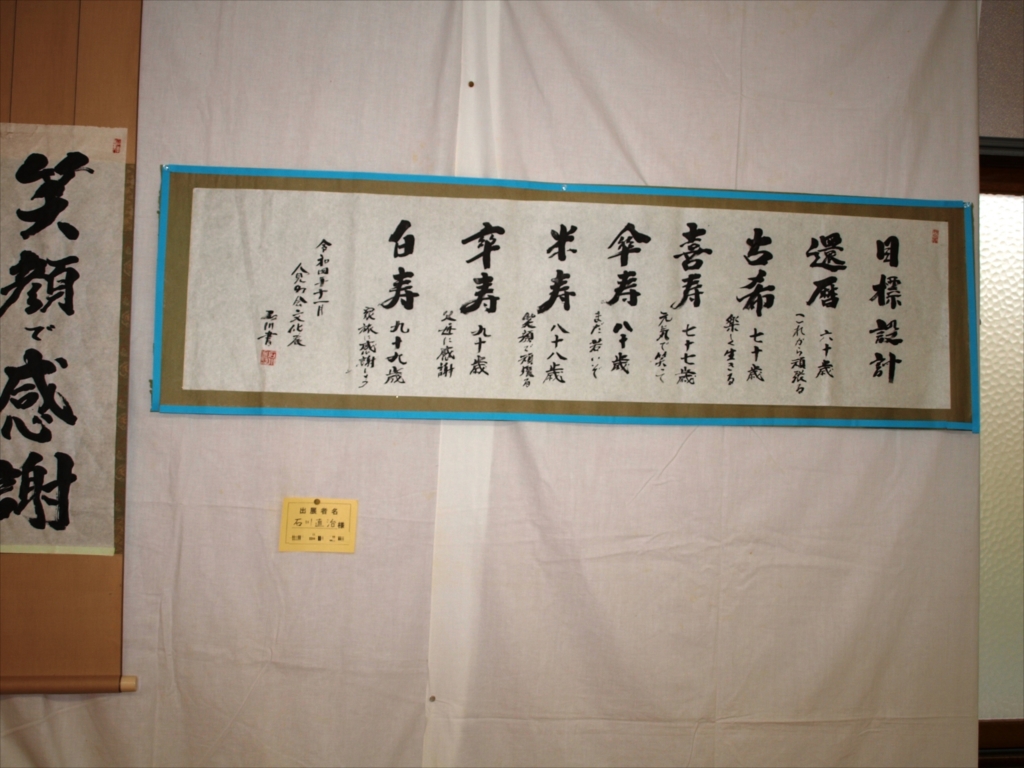 目標設計
還暦 六十歳
これから頑張る
古希 七十歳
楽しく生きる
喜寿 七十七歳
元気で笑って
傘寿 八十歳
まだ若いぞ
米寿 八十八歳
笑顔で頑張る
卒寿 九十歳
父母に感謝
白寿 九十九歳
家族に感謝しつつ
令和四年十一月
文化展
石川書
笑顔で感謝
出展者名
石川 治様